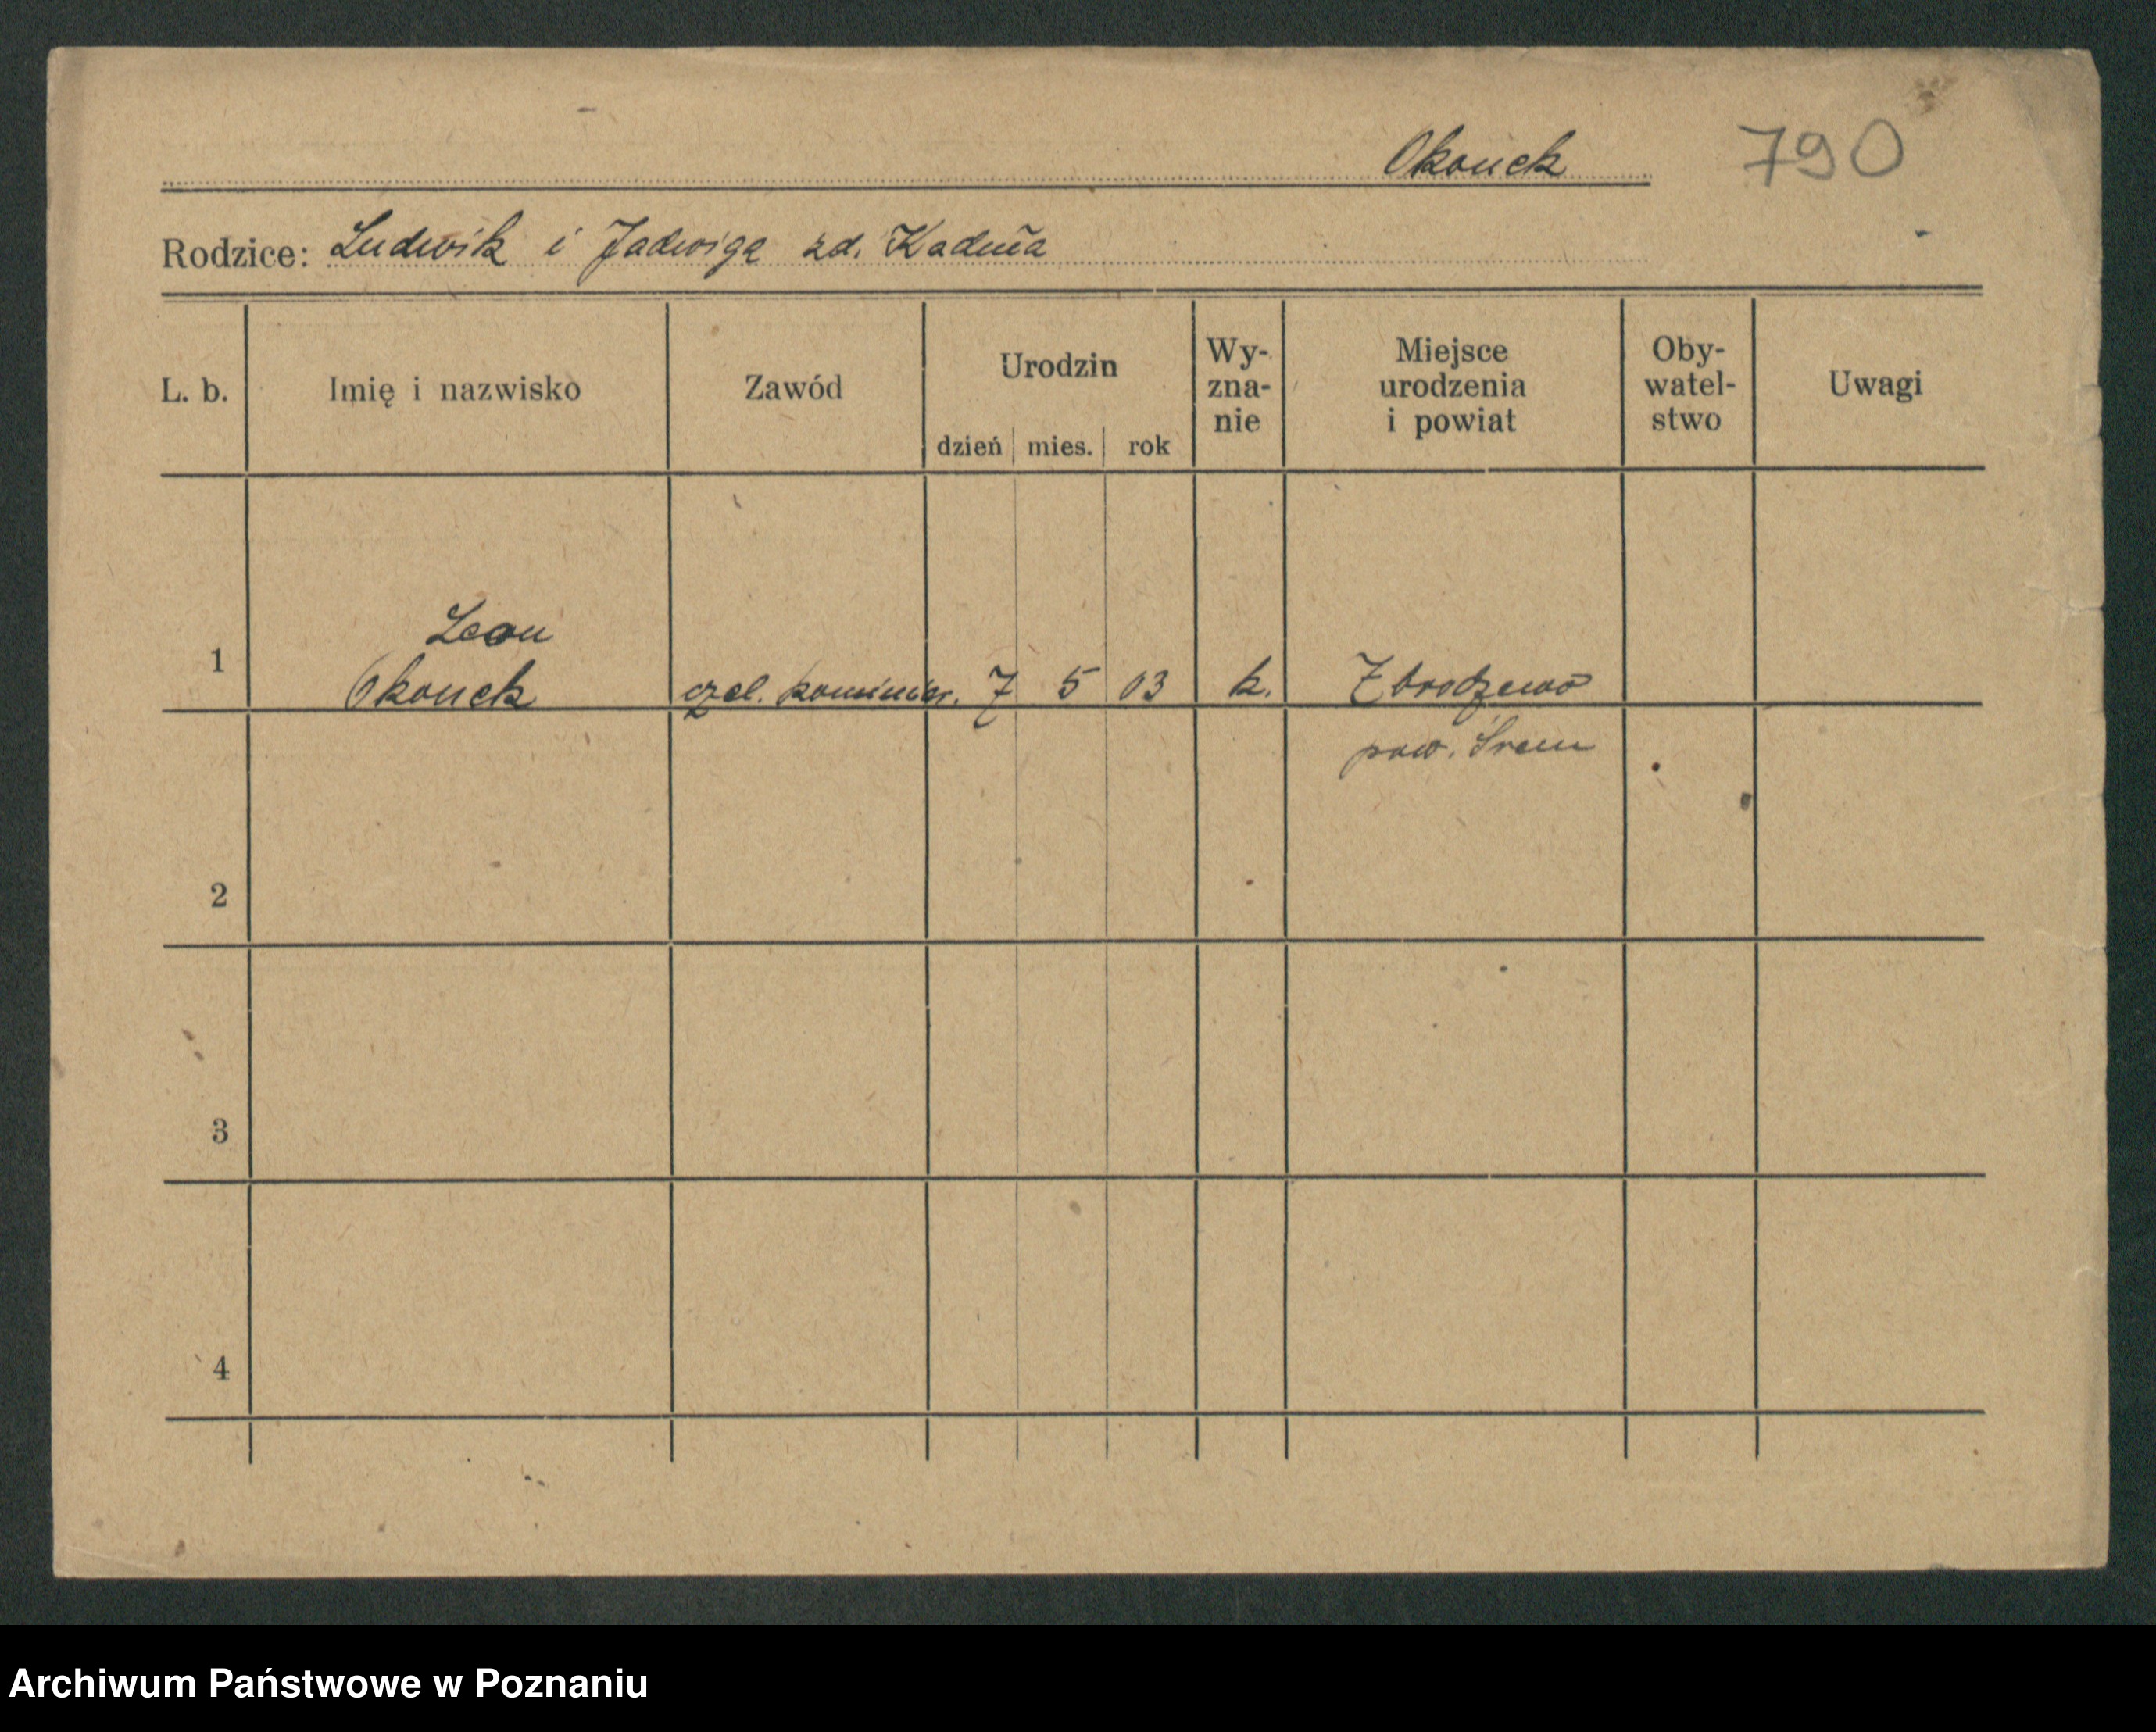 Okonek 790
Rodzice: Ludwik i Jadwiga zd.
L. b. Imię i nazwisko Zawód Urodzin Wy- Miejsce Oby- Uwagi
zna- urodzenia watel-
nie i powiat stwo
dzień mies. rok
Leon
1 Okonek czel. kominiar. 7 5 03 k. Zbrodzewo
pow. Śrem
2
3
4
Archiwum Państwowe w Poznaniu